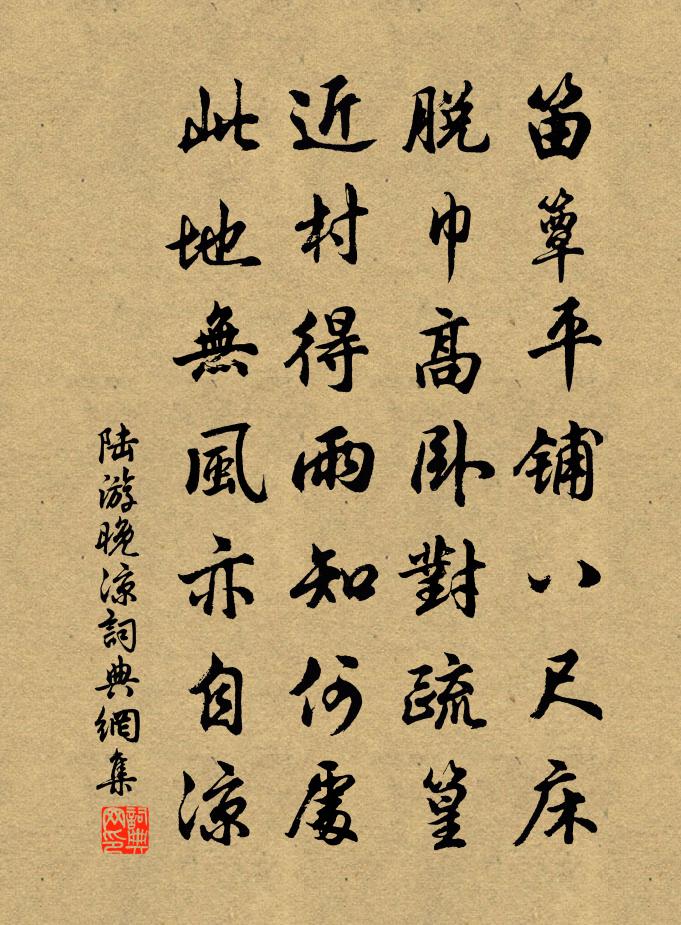 笛簟平铺八尺床
脱巾高卧對疏篁
近村得雨知何處
此地無風亦自涼
陆游晚凉詞典網集
詞典网印